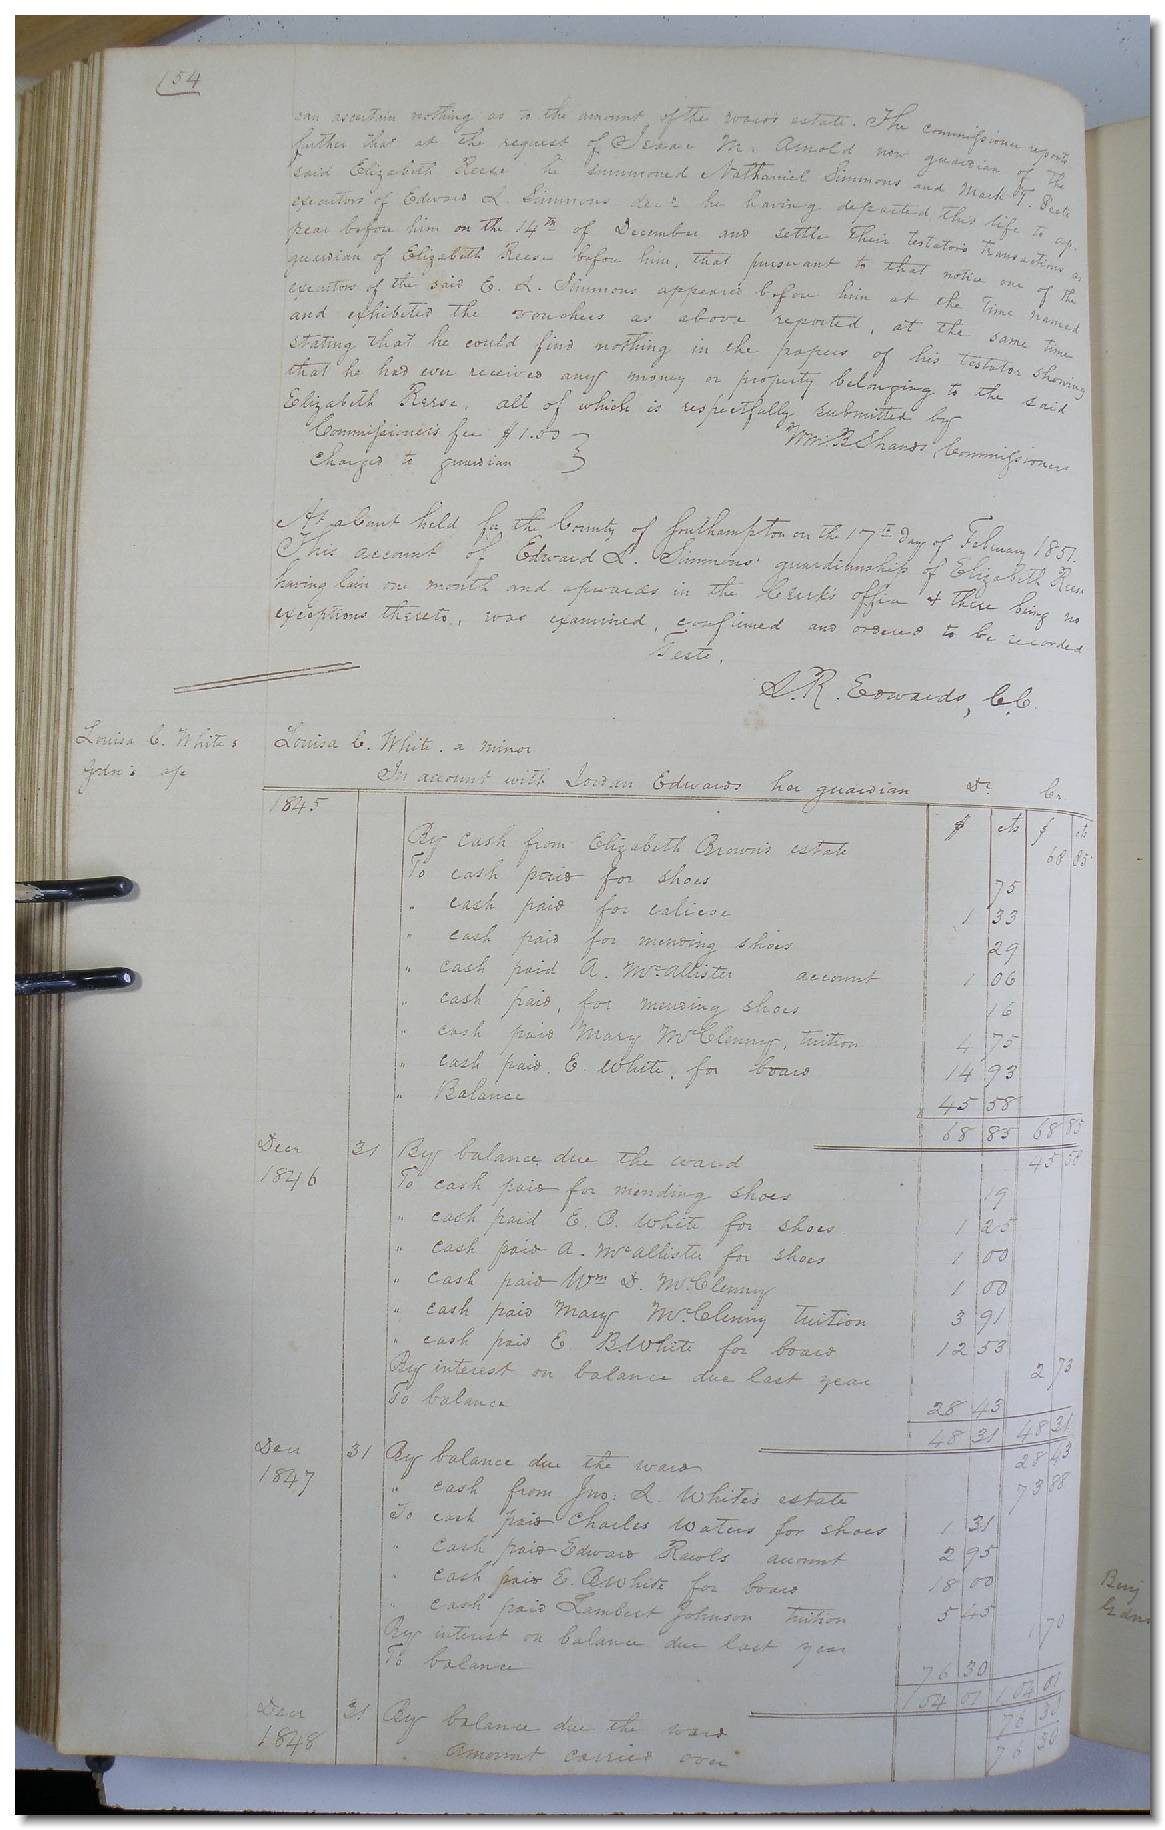 154
can ascertain nothing as to the amount of the ward's estate. The commissioner reports
further that at the request of Isaac M. Arnold now guardian of the
said Elizabeth Reese he summoned Nathaniel Simmons and Mark
executors of Edward L. Simmons decd he having departed this life to ap-
pear before him on the 14th of December and settle their testator's transactions as
guardian of Elizabeth Reese before him, that pursuant to that notice one of the
executors of the said E. L. Simmons appeared before him at the time named
and exhibited the vouchers as above reported, at the same time
stating that he could find nothing in the papers of his testator showing
that he had ever received any money or property belonging to the said
Elizabeth Reese. all of which is respectfully submitted by
Commissioner's fee $1.50 } Wm B Shands, Commissioner
charged to guardian
At a Court held for the County of Southampton on the 17th day of February 1851.
This account of Edward L. Simmons' guardianship of Elizabeth Reese
having lain one month and upwards in the Clerk's office & there being no
exceptions thereto, was examined, confirmed and ordered to be recorded
Teste,
L. R. Edwards, C.C.
Louisa C. White's
Gdn's a/c
Louisa C. White. a minor
In account with Jordan Edwards her guardian Dr. Cr.
1845 $ cts $ cts
By cash from Elizabeth Brown's estate 68 85
To cash paid for shoes 75
" cash paid for calicoe 1 33
" cash paid for mending shoes 29
" cash paid A. McAllister account 1 06
" cash paid, for mending shoes 16
" cash paid Mary McClenny, tuition 4 75
" cash paid. E. White. for board 14 93
" Balance 45 58
68 85 68 85
Decr 31 By balance due the ward 45 58
1846 To cash paid for mending shoes 19
" cash paid E. B. White for shoes 1 25
" cash paid A. McAllister for shoes 1 00
" cash paid Wm D. McClenny 1 00
" cash paid Mary McClenny tuition 3 91
" cash paid E. B. White for board 12 53
By interest on balance due last year 2 73
To balance 28 43
48 31 48 31
Decr 31 By balance due the ward 28 43
1847 " cash from Jno: L. White's estate 73 88
To cash paid Charles Waters for shoes 1 31
" cash paid Edward Rawls account 2 95
" cash paid E. B. White for board 18 00
" cash paid Lambert Johnson tuition 5 45
By interest on balance due last year 1 70
To balance 76 30
104 01 104 01
Decr 31 By balance due the ward 76 30
1848 " Amount carried over 76 30
Benj
Gdn